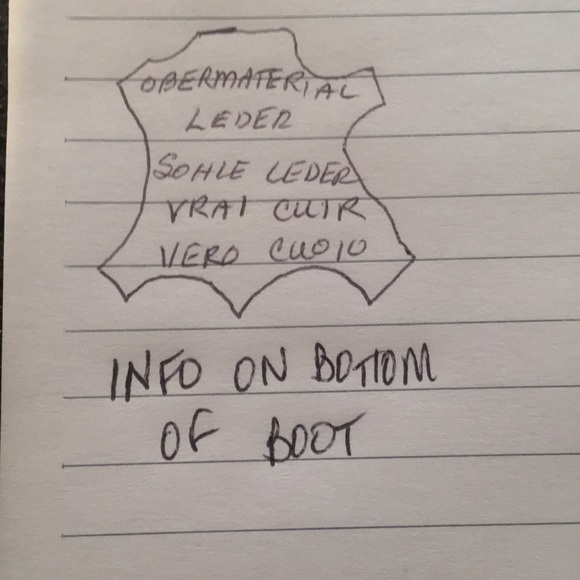 OBERMATERIAL
LEDER
SOHLE LEDER
VRAI CUIR
VERO CUOIO
INFO ON BOTTOM
OF BOOT